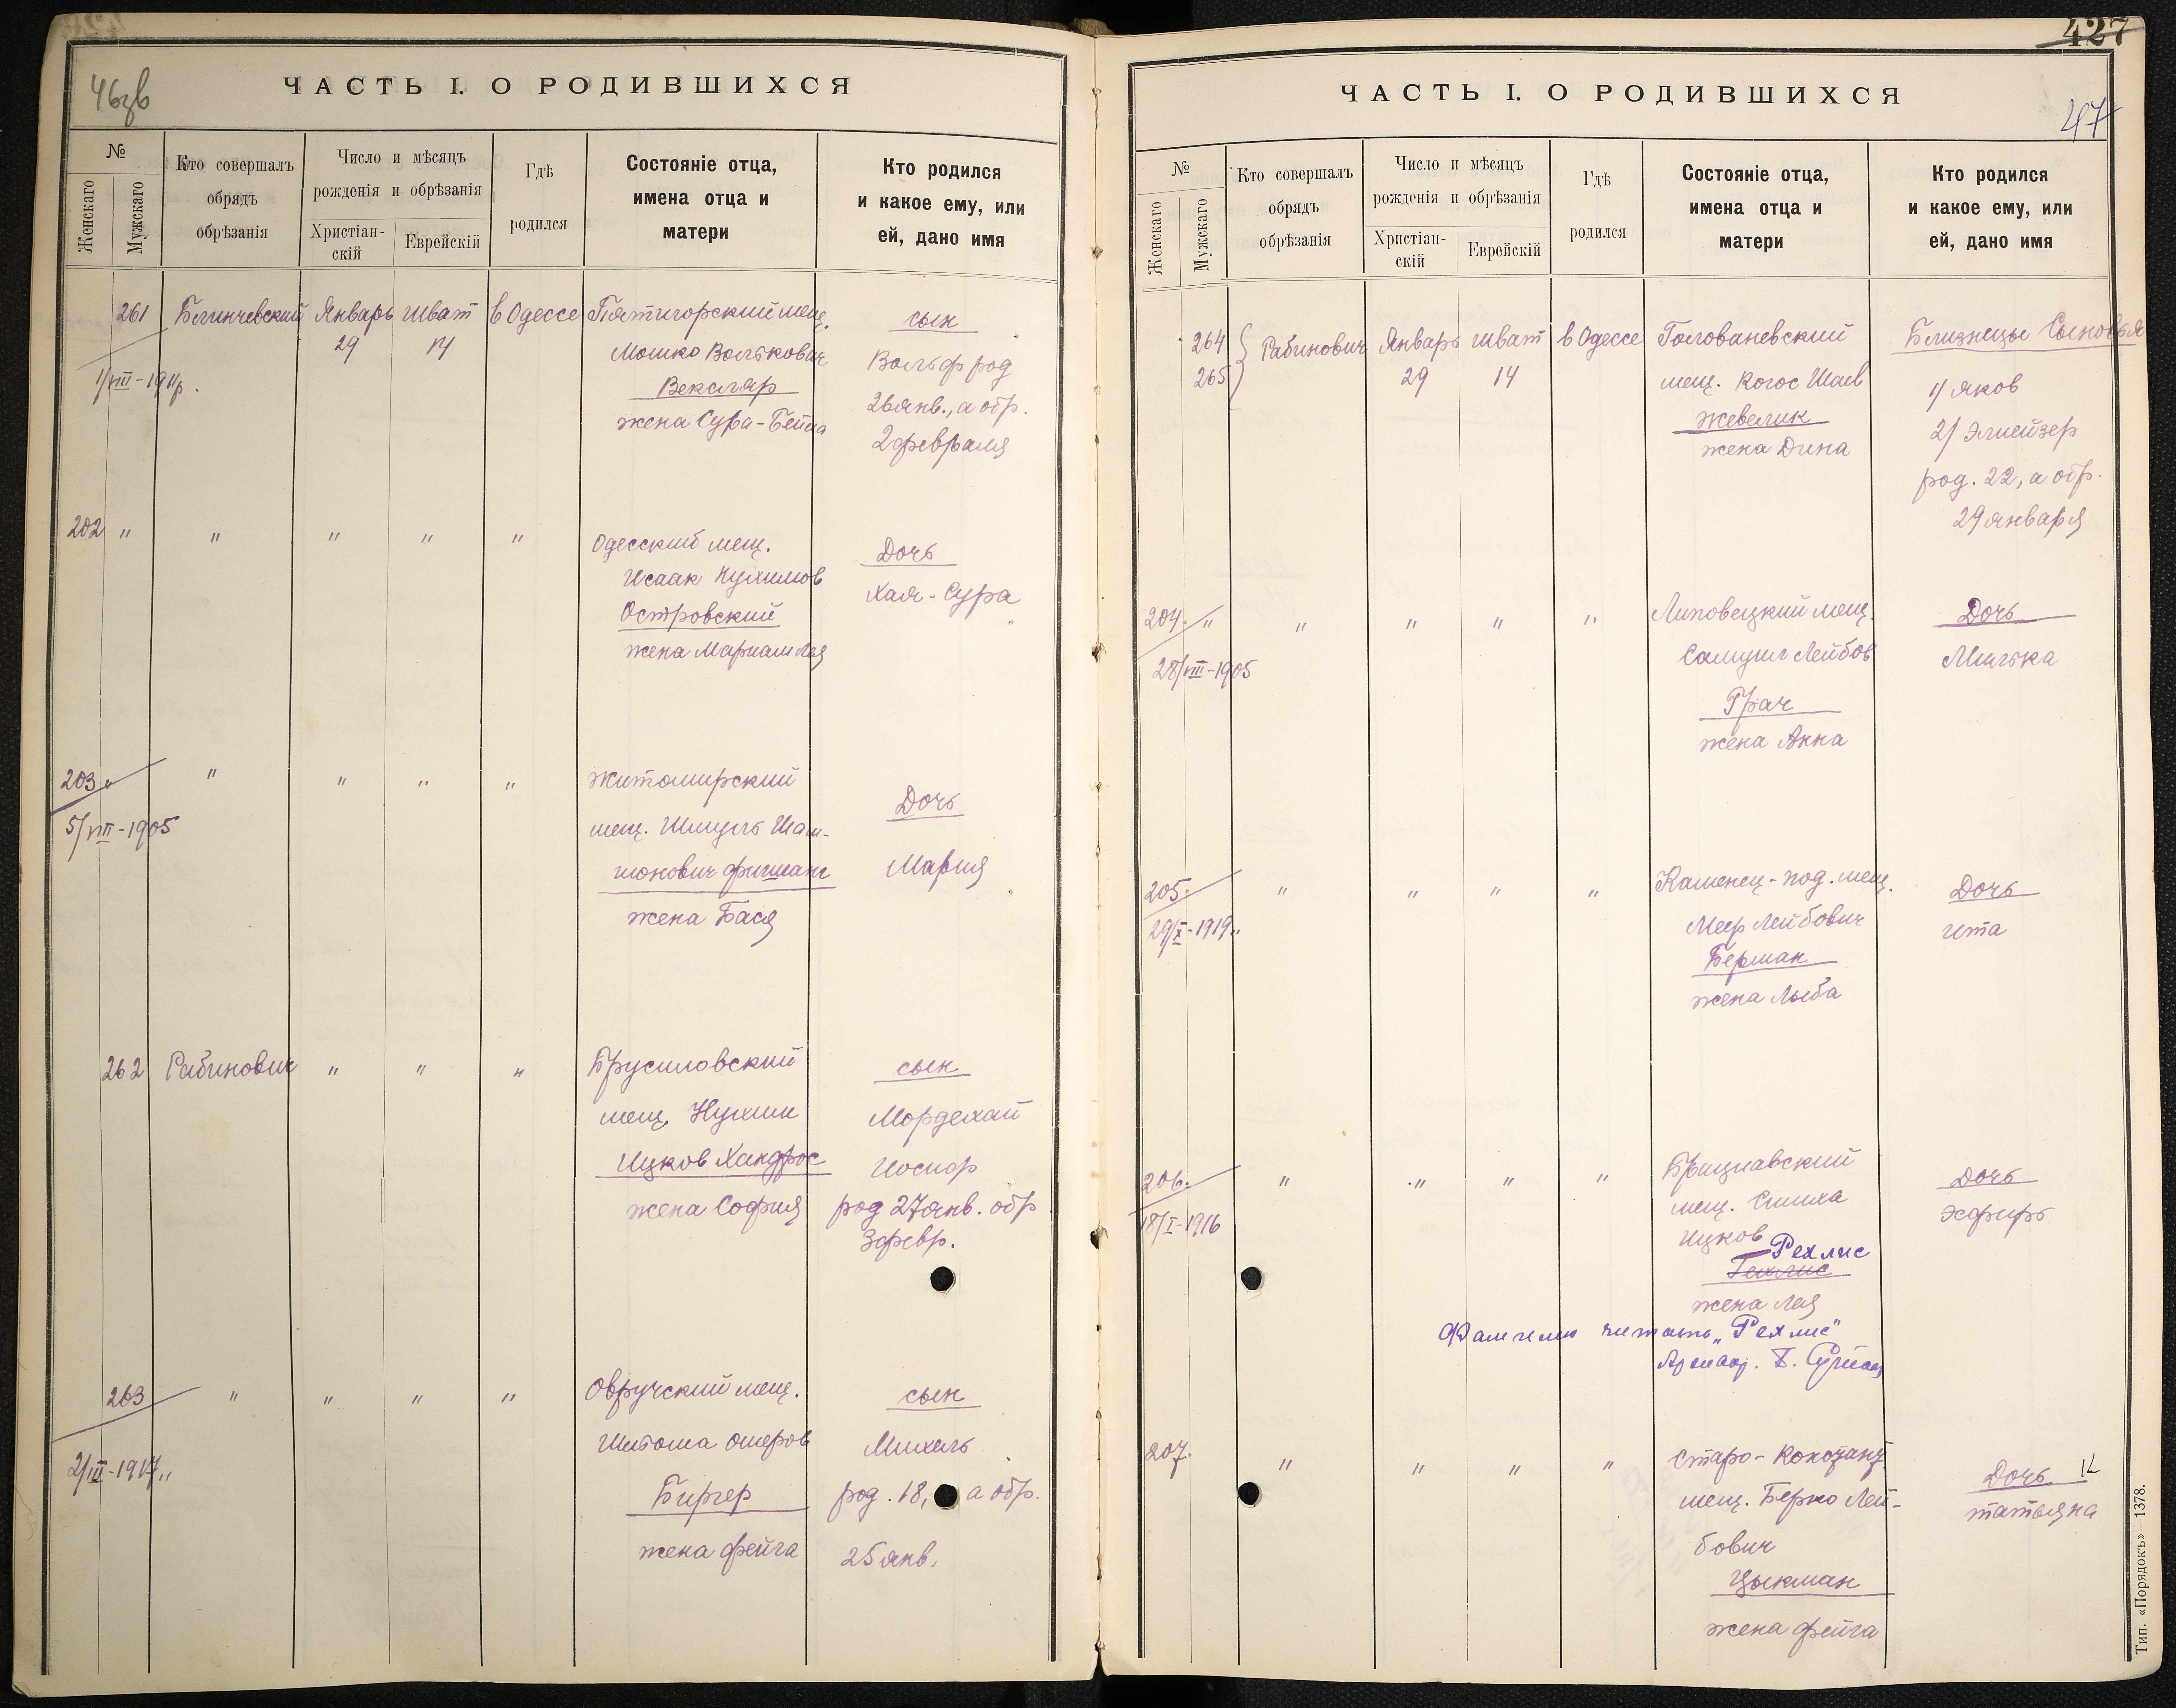 46зв
ЧАСТЬ I. О РОДИВШИХСЯ
№
Женскаго
Мужскаго
Кто совершалъ
обрядъ
обрѣзанія
Число и мѣсяцъ
рожденія и обрѣзанія
Христіан-
скій
Еврейскій
Гдѣ
родился
Состояніе отца,
имена отца и
матери
Кто родился
и какое ему, или
ей, дано имя
261
1/VIII-1911г.
Блинчевский
Январь
29
Шват
14
в Одессе
Пятигорский мещ.
Мошко Волькович
Вексляр
жена Сура-Бейла
сын
Вольф род
26 янв., а обр.
2 февраля
202 " " " " "
Одесский мещ.
Исаак Нухимов
Островский
жена Мариам Лея
Дочь
Хая-Сура
203 " " " " "
5/VIII-1905
Житомирский
мещ. Шмуль Шам-
шонович Фишман
жена Бася
Дочь
Мария
262 Рабинович " " "
Брусиловский
мещ. Нухим
Ицков Хандрос
жена София
сын
Мордехай
Иосиф
род 27 янв. обр
3 февр.
263 " " " "
2/III-1917 "
Овручский мещ.
Шлёма Ошеров
Биргер
жена Фейга
сын
Михель
род. 18, а обр.
25 янв.
427
ЧАСТЬ I. О РОДИВШИХСЯ
47
№
Женскаго
Мужскаго
Кто совершалъ
обрядъ
обрѣзанія
Число и мѣсяцъ
рожденія и обрѣзанія
Христіан-
скій
Еврейскій
Гдѣ
родился
Состояніе отца,
имена отца и
матери
Кто родился
и какое ему, или
ей, дано имя
264
265
Рабинович
Январь
29
шват
14
в Одессе
Голованевский
мещ. Когос Шаев
Жевелик
жена Дина
Близнецы Сыновья
1/ Яков
2/ Элиейзер
род. 22, а обр.
29 января
204 " " " " "
28/VIII-1905
Липовецкий мещ.
Самуил Лейбов
Грач
жена Анна
Дочь
Милька
205 " " " "
29/X-1919 "
Каменец-под. мещ.
Меер Лейбович
Берман
жена Люба
Дочь
Ита
206 " " " "
18/I-1916
Брацлавский
мещ. Симха
Ицков
Рехлис
Гехлис
жена Лея
Дочь
Эсфирь
Фамилию читать "Рехлис"
207 " " " "
Старо-Констант.
мещ. Берко Лей-
бович
Цыкман
жена Фейга
Дочь
Татьяна
Тип. «Порядокъ»—1378.